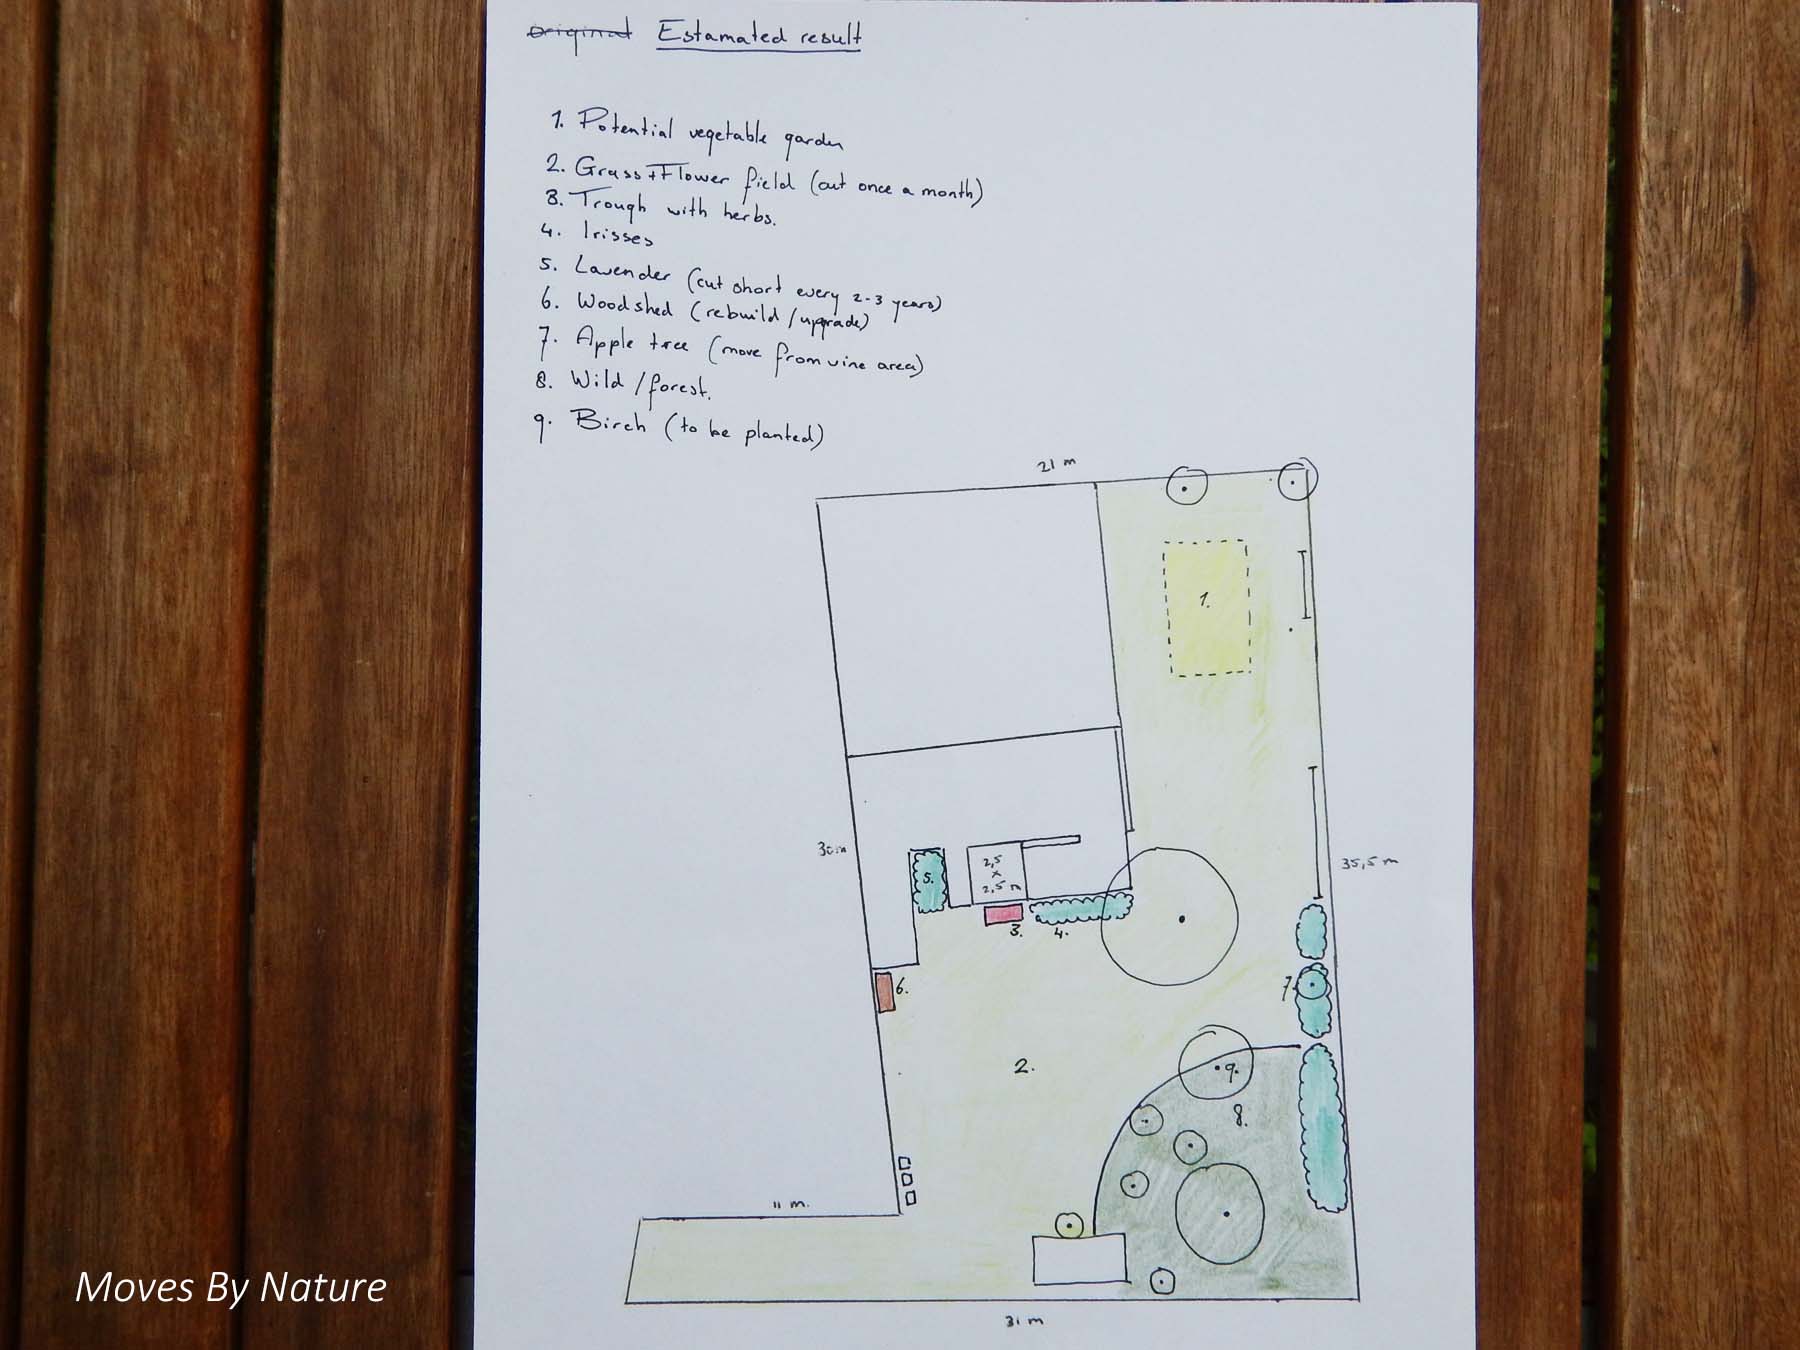 original Estamated result
1. Potential vegetable garden
2. Grass+Flower field (cut once a month)
3. Trough with herbs.
4. Irisses
5. Lavender (cut short every 2-3 years)
6. Woodshed (rebuild/upgrade)
7. Apple tree (move from vine area)
8. Wild/forest.
9. Birch (to be planted)
21 m
1.
30m
2,5
x
2,5 m
35,5 m
5.
3.
4.
6.
7.
2.
9.
8.
11 m.
31 m
Moves By Nature